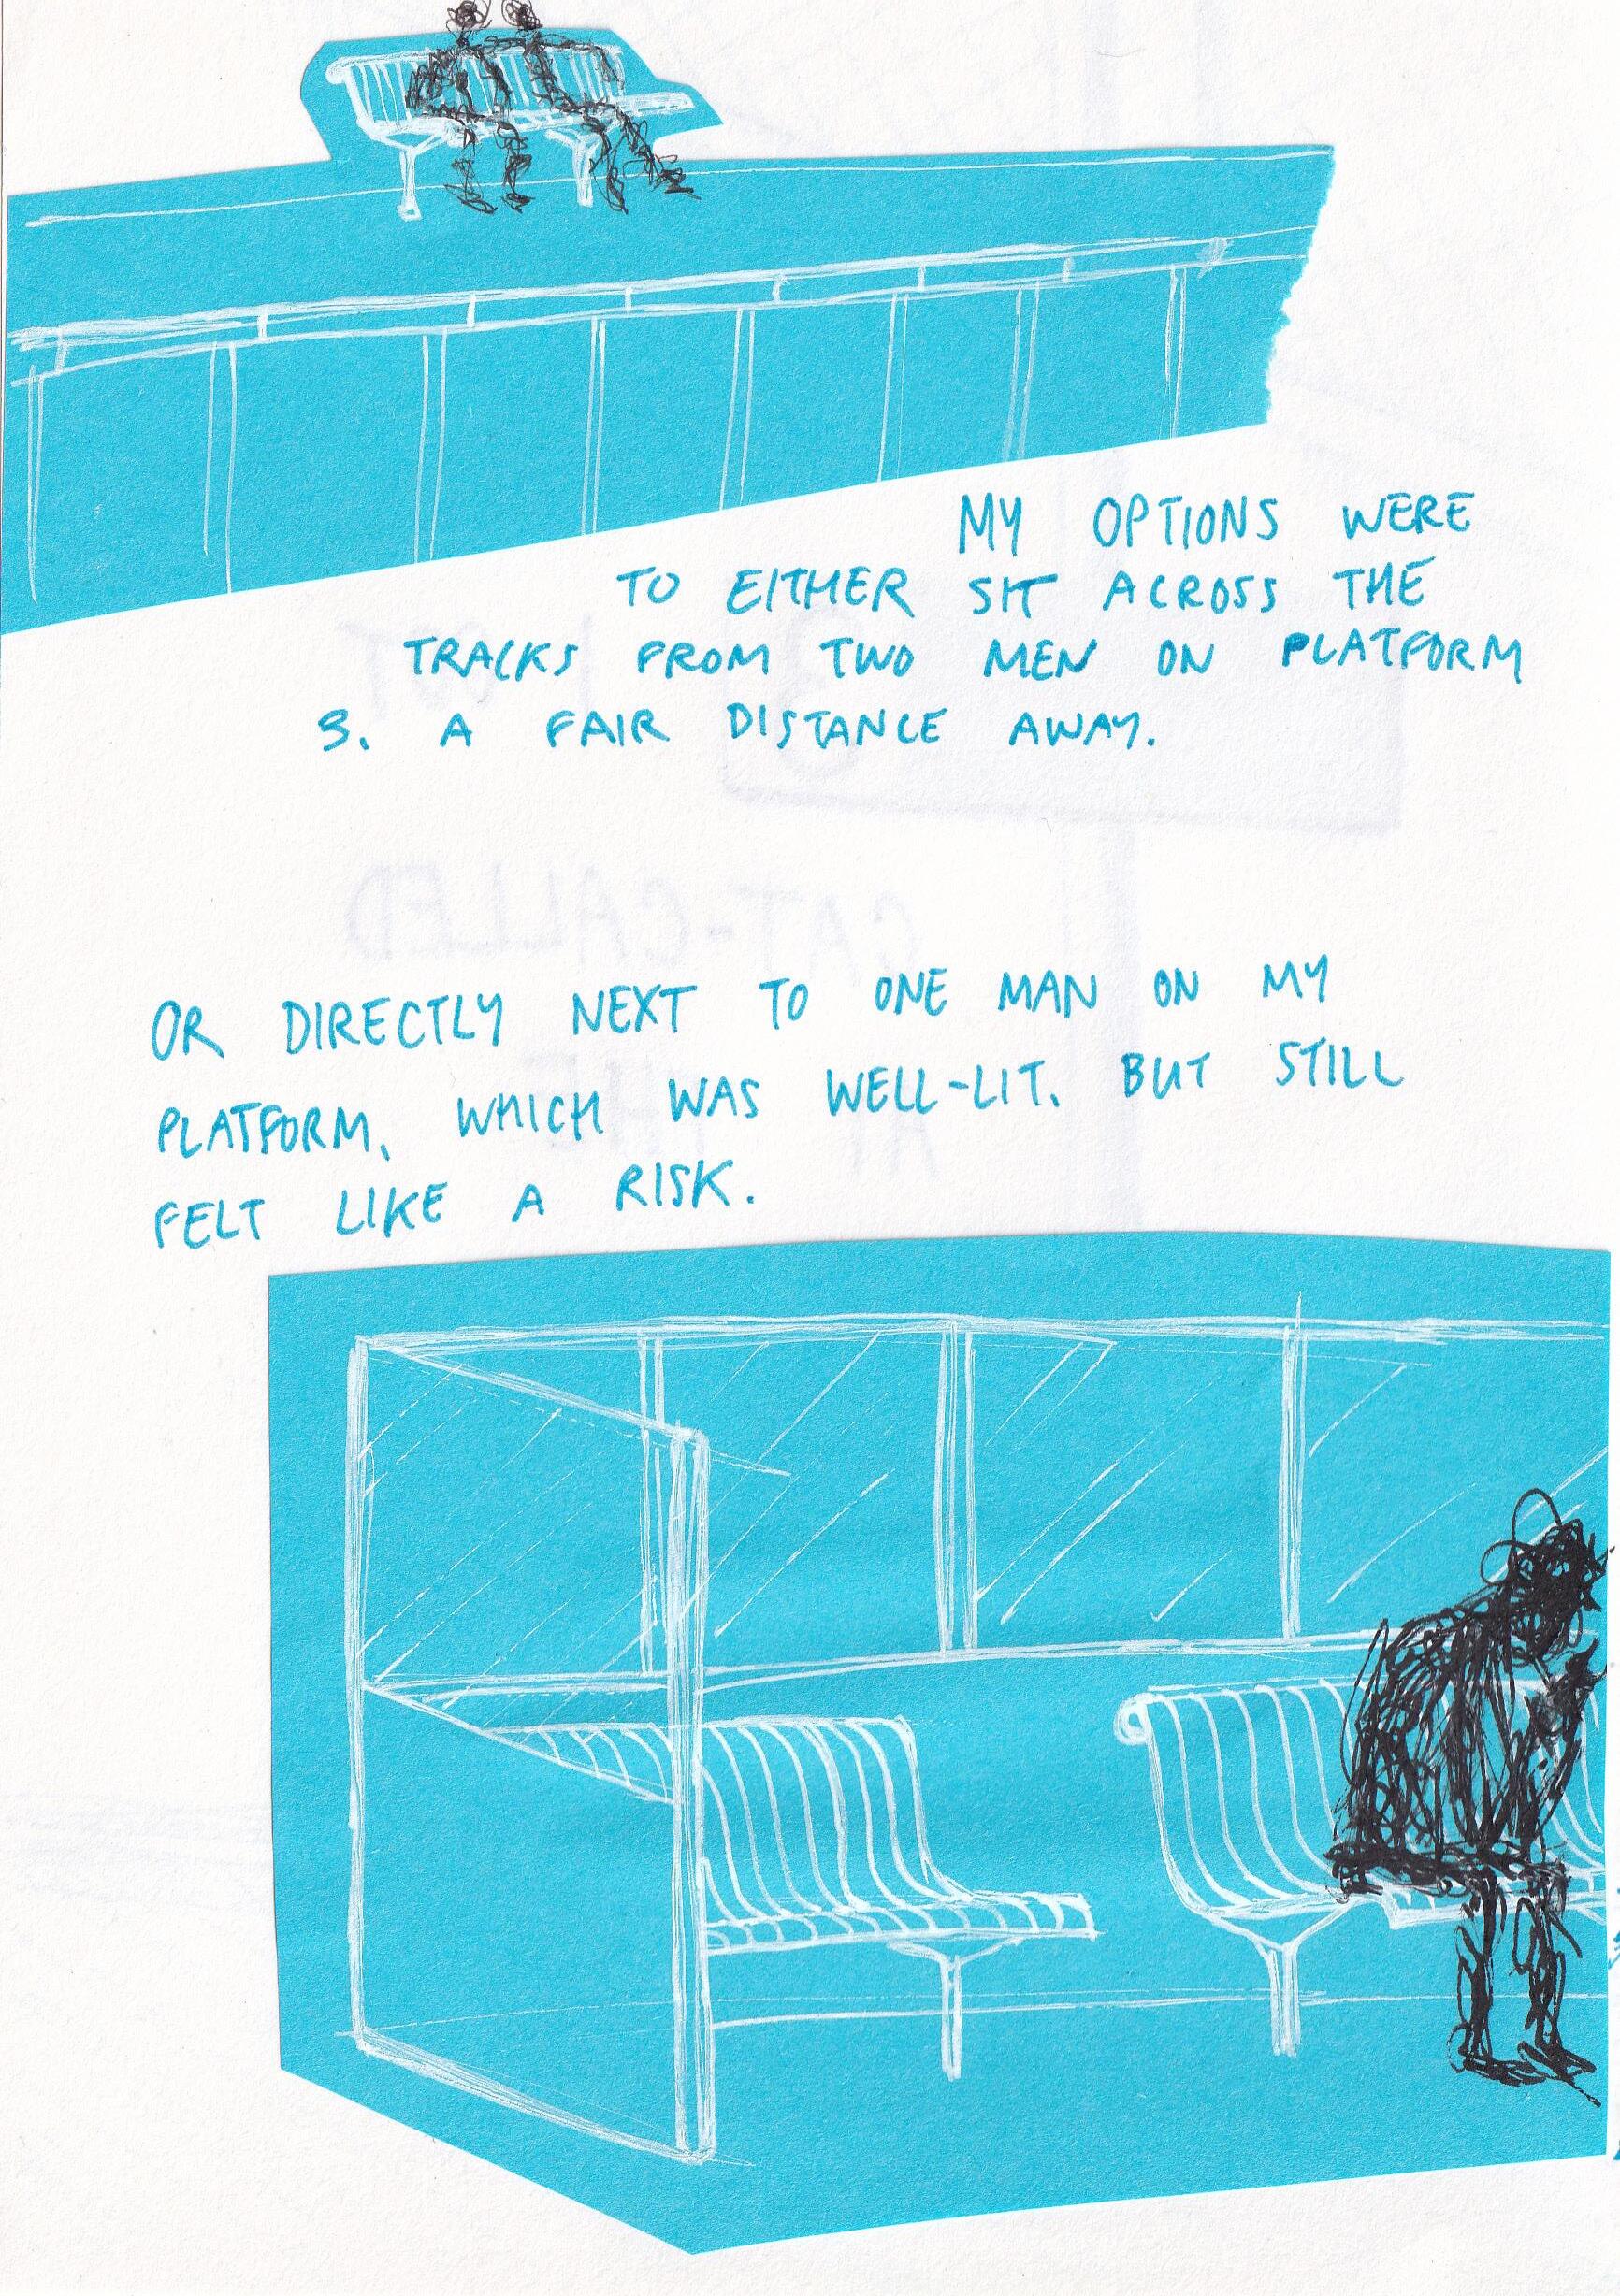 MY OPTIONS WERE
TO EITHER SIT ACROSS THE
TRACKS FROM TWO MEN ON PLATFORM
3. A FAIR DISTANCE AWAY.
OR DIRECTLY NEXT TO ONE MAN ON MY
PLATFORM, WHICH WAS WELL-LIT. BUT STILL
FELT LIKE A RISK.